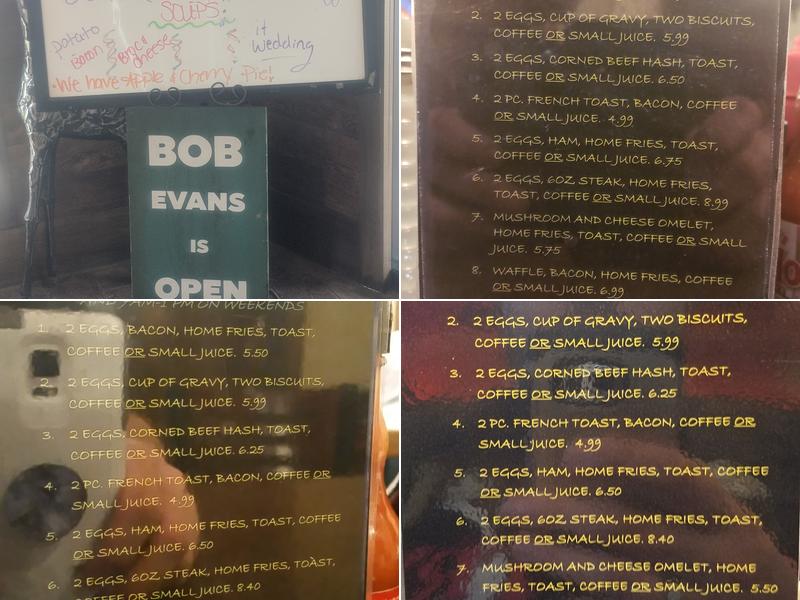 SOUPS
Potato
Bacon
Mac &
cheese
it
Wedding
• We have Apple & Cherry Pie!
BOB
EVANS
IS
OPEN
2. 2 EGGS, CUP OF GRAVY, TWO BISCUITS,
COFFEE OR SMALL JUICE. 5.99
3. 2 EGGS, CORNED BEEF HASH, TOAST,
COFFEE OR SMALL JUICE. 6.50
4. 2 PC. FRENCH TOAST, BACON, COFFEE
OR SMALL JUICE. 4.99
5. 2 EGGS, HAM, HOME FRIES, TOAST,
COFFEE OR SMALL JUICE. 6.75
6. 2 EGGS, 6OZ STEAK, HOME FRIES,
TOAST, COFFEE OR SMALL JUICE. 8.99
7. MUSHROOM AND CHEESE OMELET,
HOME FRIES, TOAST, COFFEE OR SMALL
JUICE. 5.75
8. WAFFLE, BACON, HOME FRIES, COFFEE
OR SMALL JUICE. 6.99
AND 7AM-1 PM ON WEEKENDS
1. 2 EGGS, BACON, HOME FRIES, TOAST,
COFFEE OR SMALL JUICE. 5.50
2. 2 EGGS, CUP OF GRAVY, TWO BISCUITS,
COFFEE OR SMALL JUICE. 5.99
3. 2 EGGS, CORNED BEEF HASH, TOAST,
COFFEE OR SMALL JUICE. 6.25
4. 2 PC. FRENCH TOAST, BACON, COFFEE OR
SMALL JUICE. 4.99
5. 2 EGGS, HAM, HOME FRIES, TOAST, COFFEE
OR SMALL JUICE. 6.50
6. 2 EGGS, 6OZ STEAK, HOME FRIES, TOAST,
COFFEE OR SMALL JUICE. 8.40
2. 2 EGGS, CUP OF GRAVY, TWO BISCUITS,
COFFEE OR SMALL JUICE. 5.99
3. 2 EGGS, CORNED BEEF HASH, TOAST,
COFFEE OR SMALL JUICE. 6.25
4. 2 PC. FRENCH TOAST, BACON, COFFEE OR
SMALL JUICE. 4.99
5. 2 EGGS, HAM, HOME FRIES, TOAST, COFFEE
OR SMALL JUICE. 6.50
6. 2 EGGS, 6OZ STEAK, HOME FRIES, TOAST,
COFFEE OR SMALL JUICE. 8.40
7. MUSHROOM AND CHEESE OMELET, HOME
FRIES, TOAST, COFFEE OR SMALL JUICE. 5.50